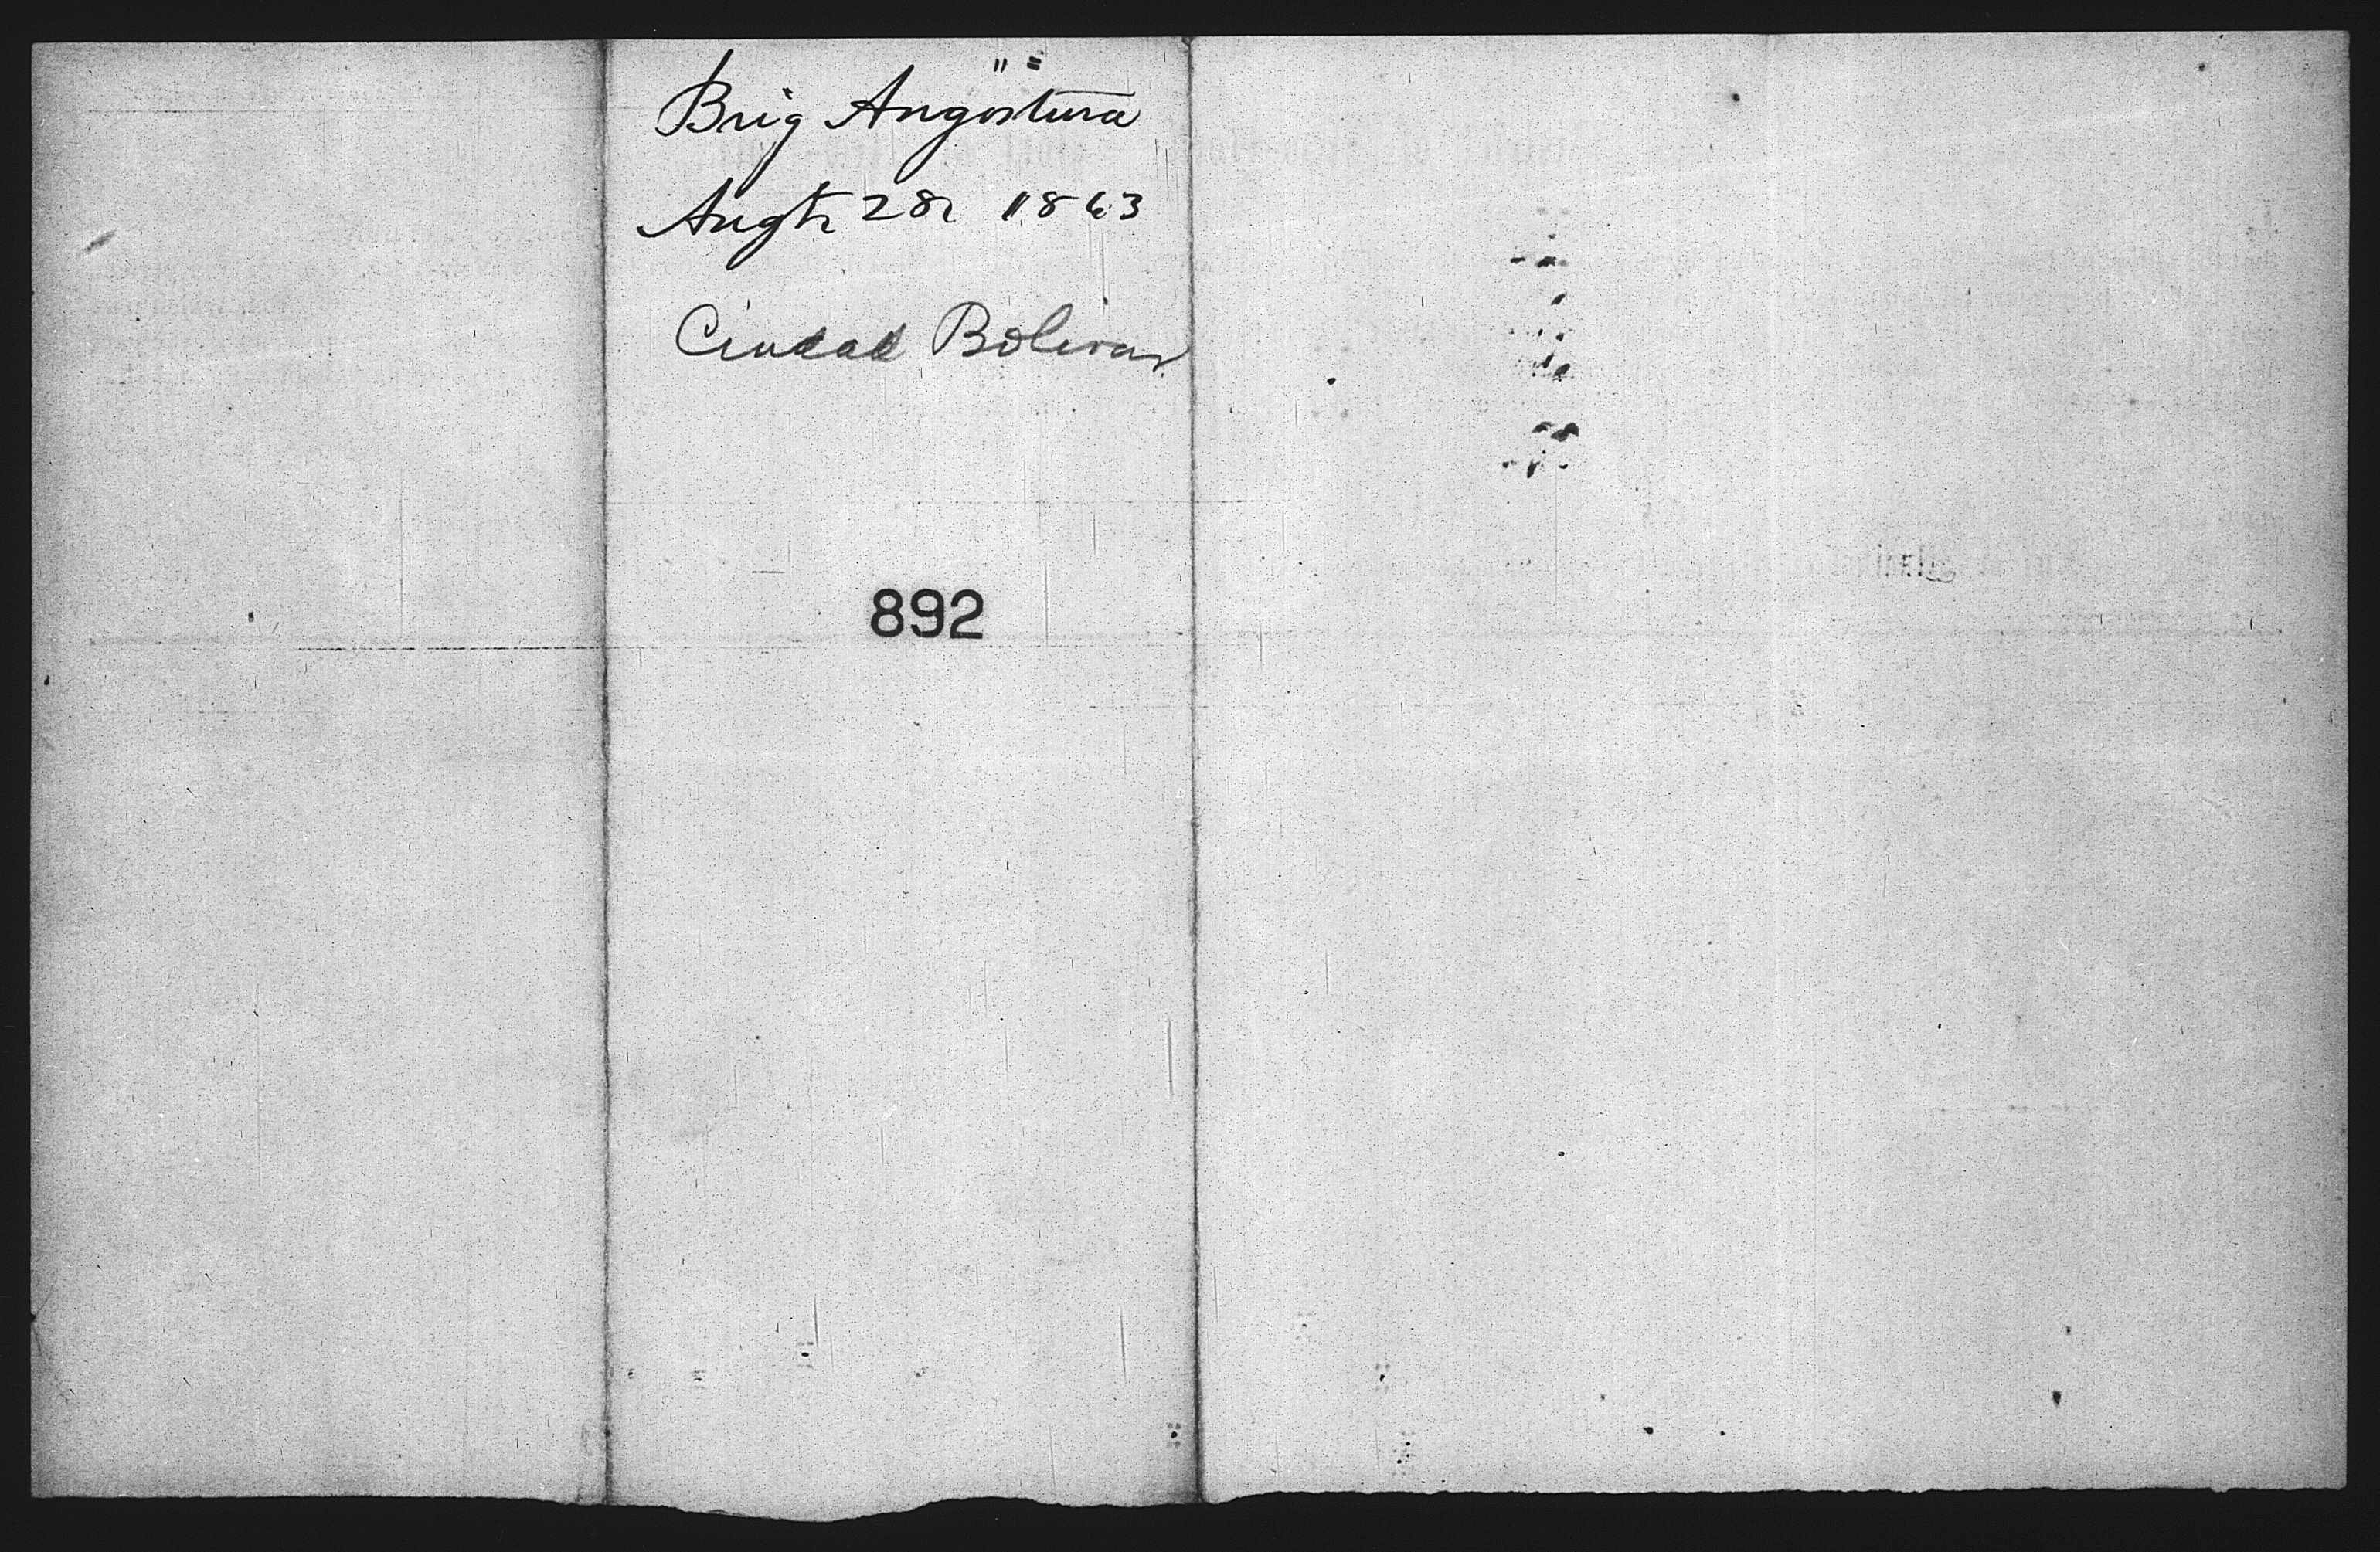 Brig Angostura
Augt 28 1863
Ciudad Bolivar
892